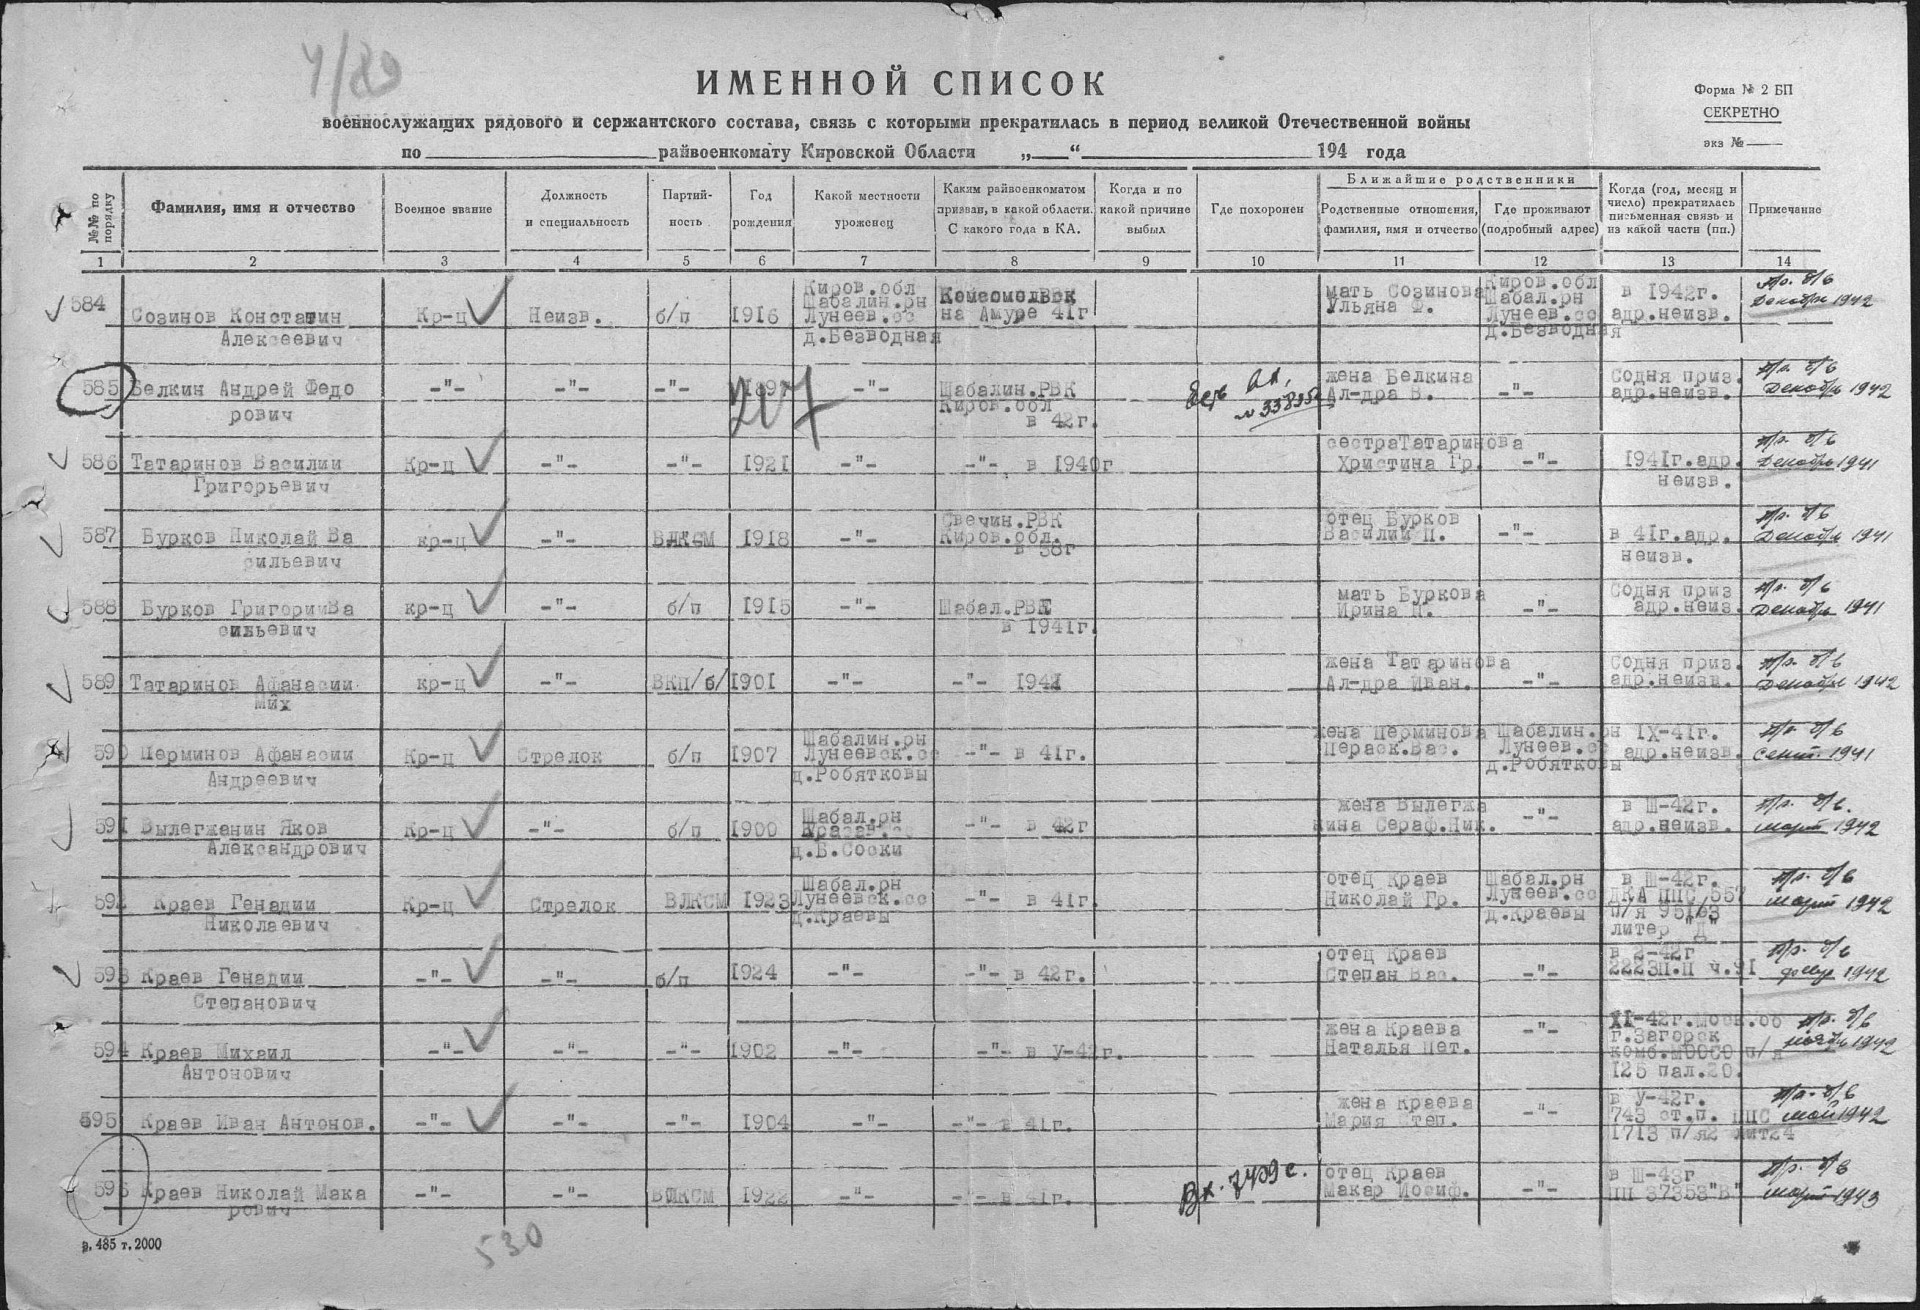 4/89
ИМЕННОЙ СПИСОК
Форма № 2 БП
СЕКРЕТНО
экз №
военнослужащих рядового и сержантского состава, связь с которыми прекратилась в период великой Отечественной войны
по райвоенкомату Кировской Области „ “ 194 года
№№ по порядку
Фамилия, имя и отчество
Военное звание
Должность и специальность
Партий- ность
Год рождения
Какой местности уроженец
Каким райвоенкоматом призван, в какой области. С какого года в КА.
Когда и по какой причине выбыл
Где похоронен
Ближайшие родственники
Родственные отношения, фамилия, имя и отчество
Где проживают (подробный адрес)
Когда (год, месяц и число) прекратилась письменная связь и из какой части (пп.)
Примечание
1 2 3 4 5 6 7 8 9 10 11 12 13 14
584 Созинов Констатин Алексеевич Кр-ц Неизв. б/п 1916 Киров.обл Шабалин.рн Лунеев.сс д.Безводная Комсомольск на Амуре 41г мать Созинова Ульяна Ф. Киров.обл Шабал.рн Лунеев.сс д.Безводная в 1942г. адр.неизв. пр. б/в декабрь 1942
585 Белкин Андрей Федо рович -"- -"- -"- 1897 -"- Шабалин.РВК Киров.обл в 42г. жена Белкина Ал-дра В. -"- Содня приз. адр.неизв. пр. б/в декабрь 1942
217
586 Татаринов Василии Григорьевич Кр-ц -"- -"- 1921 -"- -"- в 1940г сестраТатаринова Христина Гр. -"- 1941г.адр. неизв. пр. б/в декабрь 1941
587 Бурков Николай Ва сильевич кр-ц -"- ВЛКСМ 1918 -"- Свечин.РВК Киров.обл. в 38г отец Бурков Василий П. -"- в 41г.адр. неизв. пр. б/в декабрь 1941
588 Бурков ГригориийВа сильевич кр-ц -"- б/п 1915 -"- Шабал.РВК в 1941г. мать Буркова Ирина И. -"- Содня приз адр.неиз. пр. б/в декабрь 1941
589 Татаринов Афанасии Мих кр-ц -"- ВКП/б/ 1901 -"- -"- 1942 жена Татаринова Ал-дра Иван. -"- Содня приз. адр.неизв. пр. б/в декабрь 1942
590 Перминов Афанасии Андреевич Кр-ц Стрелок б/п 1907 Шабалин.рн Лунеевск.сс д.Робятковы -"- в 41г. жена Перминова Параск.Вас. Шабалин.рн Лунеев.сс д.Робятковы IX-41г. адр.неизв. пр. б/в сент. 1941
591 Вылегжанин Яков Александрович Кр-ц -"- б/п 1900 Шабал.рн д.Б.Соски -"- в 42г жена Вылегжа нина Сераф.Ник. -"- в Ш-42г. адр.неизв. пр. б/в. март 1942
592 Краев Генадии Николаевич Кр-ц Стрелок ВЛКСМ 1923 Шабал.рн Лунеевск.сс д.Краевы -"- в 41г. отец Краев Николай Гр. Шабал.рн Лунеев.сс д.Краевы в Ш-42г. ДКА ППС 557 п/я 951/63 литер "Д" пр. б/в март 1942
593 Краев Генадии Степанович -"- -"- б/п 1924 -"- -"- в 42г. отец Краев Степан Вас. -"- в 2-42г 2223П.П ч.91 пр. б/в февр 1942
594 Краев Михаил Антонович -"- -"- -"- 1902 -"- -"- в У-42г. жена Краева Наталья Пет. -"- XI-42г.Моск.об г.Загорск п/я 125 пал.20. пр. б/в ноябрь 1942
595 Краев Иван Антонов. -"- -"- -"- 1904 -"- -"- в 41г. жена Краева Мария Степ. -"- в У-42г. 743 ст.п. ППС 1713 п/я2 лит24 пр. б/в май 1942
596 Краев Николай Мака рович -"- -"- ВЛКСМ 1922 -"- -"- в 41г. Вх. 7409с. отец Краев Макар Иосиф. -"- в Ш-43г ПП 37353"В" пр. б/в март 1943
з. 485 т. 2000
530